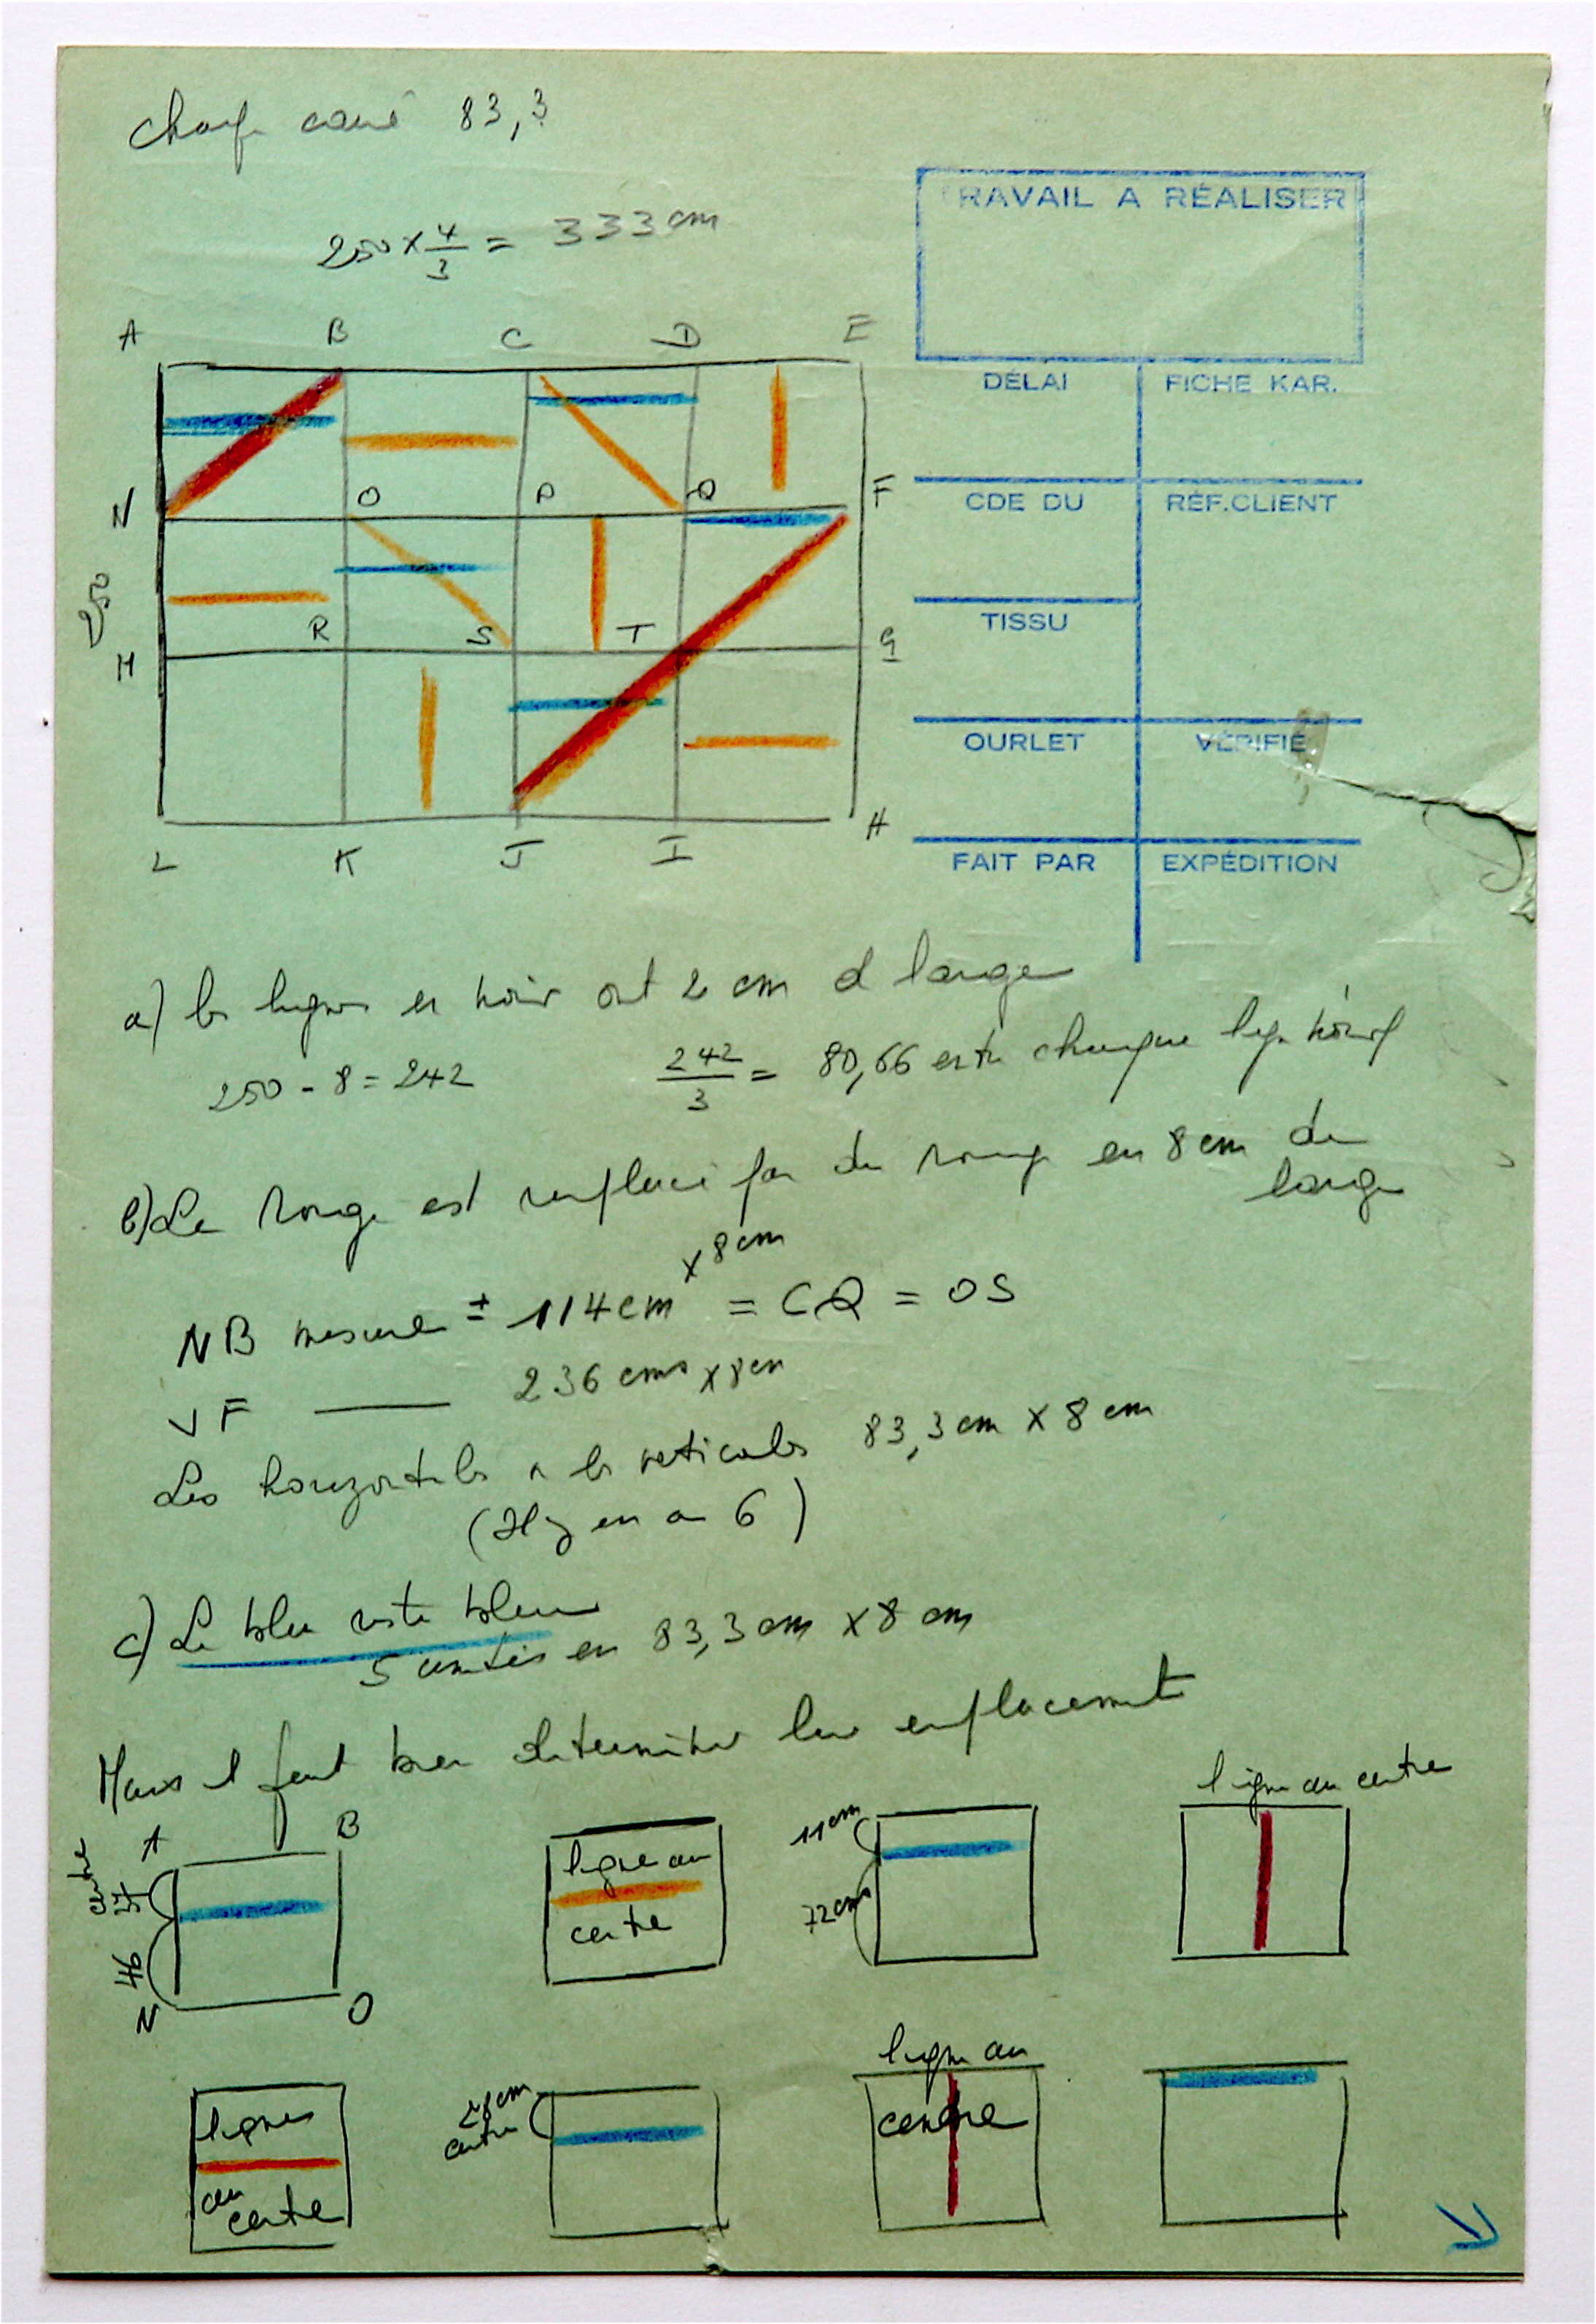 carré 83,3
250 x 4/3 = 333 cm
A B C D E
N O P Q F
250
R S T
M G
L K J I H
TRAVAIL A RÉALISER
DÉLAI FICHE KAR.
CDE DU RÉF.CLIENT
TISSU
OURLET VÉRIFIÉ
FAIT PAR EXPÉDITION
a) les lignes en noir ont 2 cm d large
250 - 8 = 242 242/3 = 80,66 entre chaque ligne
b) Le rouge est remplacé par du rouge en 8 cm de
large
x 8 cm
NB mesure ± 114 cm = CQ = OS
JF — 236 cms x 8 cm
Les horizontales les verticales 83,3 cm x 8 cm
(Il y en a 6)
c) Le bleu reste bleu
5 unités en 83,3 cm x 8 cm
Mais il faut bien déterminer leur emplacement
ligne au centre
A B
centre
37
46
N O
ligne au
centre
11 cm
72 cms
lignes
au
centre
cm
centre
ligne au
centre